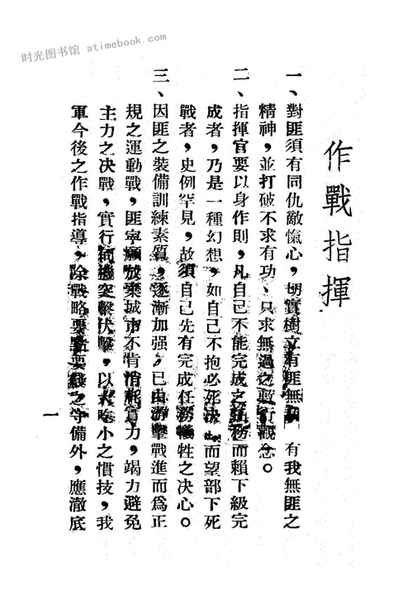 时光图书馆 atimebook.com
作戰指揮
一、對匪須有同仇敵愾心，切實樹立有匪無我 有我無匪之
精神，並打破不求有功、只求無過之敷衍觀念。
二、指揮官要以身作則，凡自己不能完成之任務而賴下級完
成者，乃是一種幻想，如自己不抱必死決而望部下死
戰者，史例罕見，故須自己先有完成任務犧牲之決心。
三、因匪之裝備訓練素質，逐漸加强，已由游擊戰進而爲正
規之運動戰，匪寧願放棄城市不肯消耗實力，竭力避免
主力之決戰，實行伺機突擊伏擊，以大吃小之慣技，我
軍今後之作戰指導，除戰略要點要綫之守備外，應澈底
一